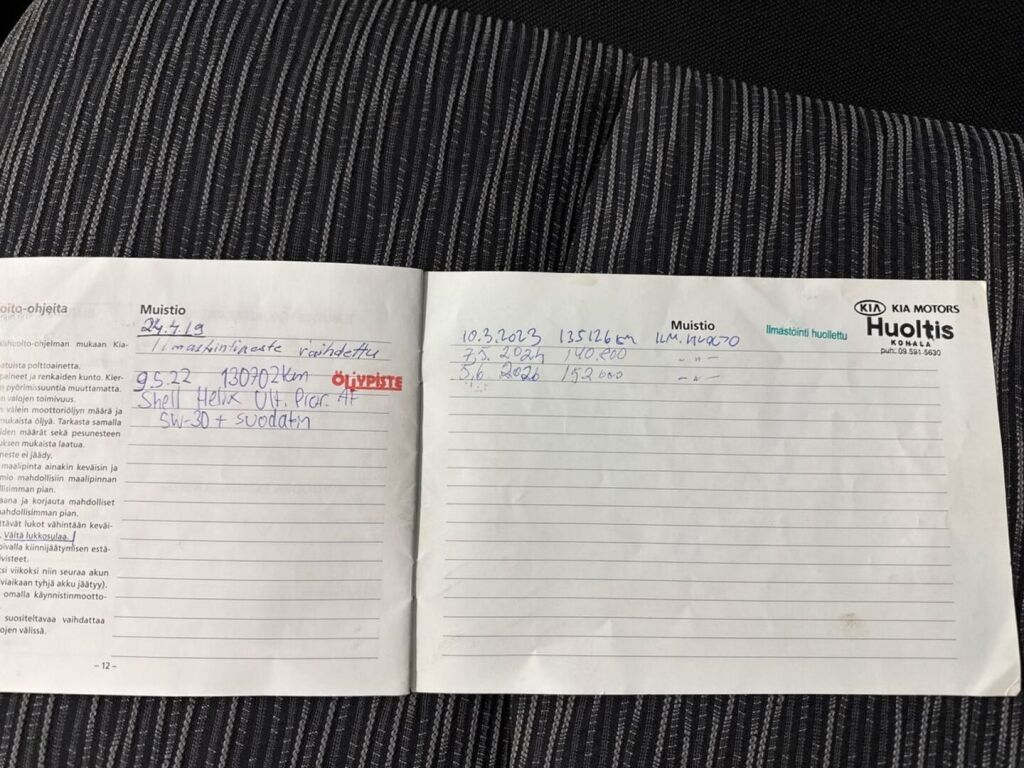 oito-ohjeita
lshuolto-ohjelman mukaan Kia-
atuista polttoainetta.
paineet ja renkaiden kunto. Kier-
n pyörimissuuntia muuttamatta.
n valojen toimivuus.
n välein moottoriöljyn määrä ja
mukaista öljyä. Tarkasta samalla
iden määrät sekä pesunesteen
uksen mukaista laatua.
neste ei jäädy.
maalipinta ainakin keväisin ja
mio mahdollisiin maalipinnan
llisimman pian.
aana ja korjauta mahdolliset
ahdollisimman pian.
ttävät lukot vähintään keväi-
. Vältä lukkosulaa.
oivalla kiinnijäätymisen estä-
ivisteet.
si viikoksi niin seuraa akun
viaikaan tyhjä akku jäätyy).
omalla käynnistinmootto-
suositeltavaa vaihdattaa
ojen välissä.
Muistio
24.4.19
Ilmastointineste vaihdettu
9.5.22 130702km ÖLJYPISTE
Shell Helix Ult. Pror. AF
5W-30 + suodatin
– 12 –
Muistio
Ilmastointi huollettu
KIA KIA MOTORS
Huoltis
KONALA
puh: 09 591 5630
10.3.2023 135126 km ILM. HUOLTO
7.5. 2024 140.800 -"-
5.6. 2026 152000 -"-